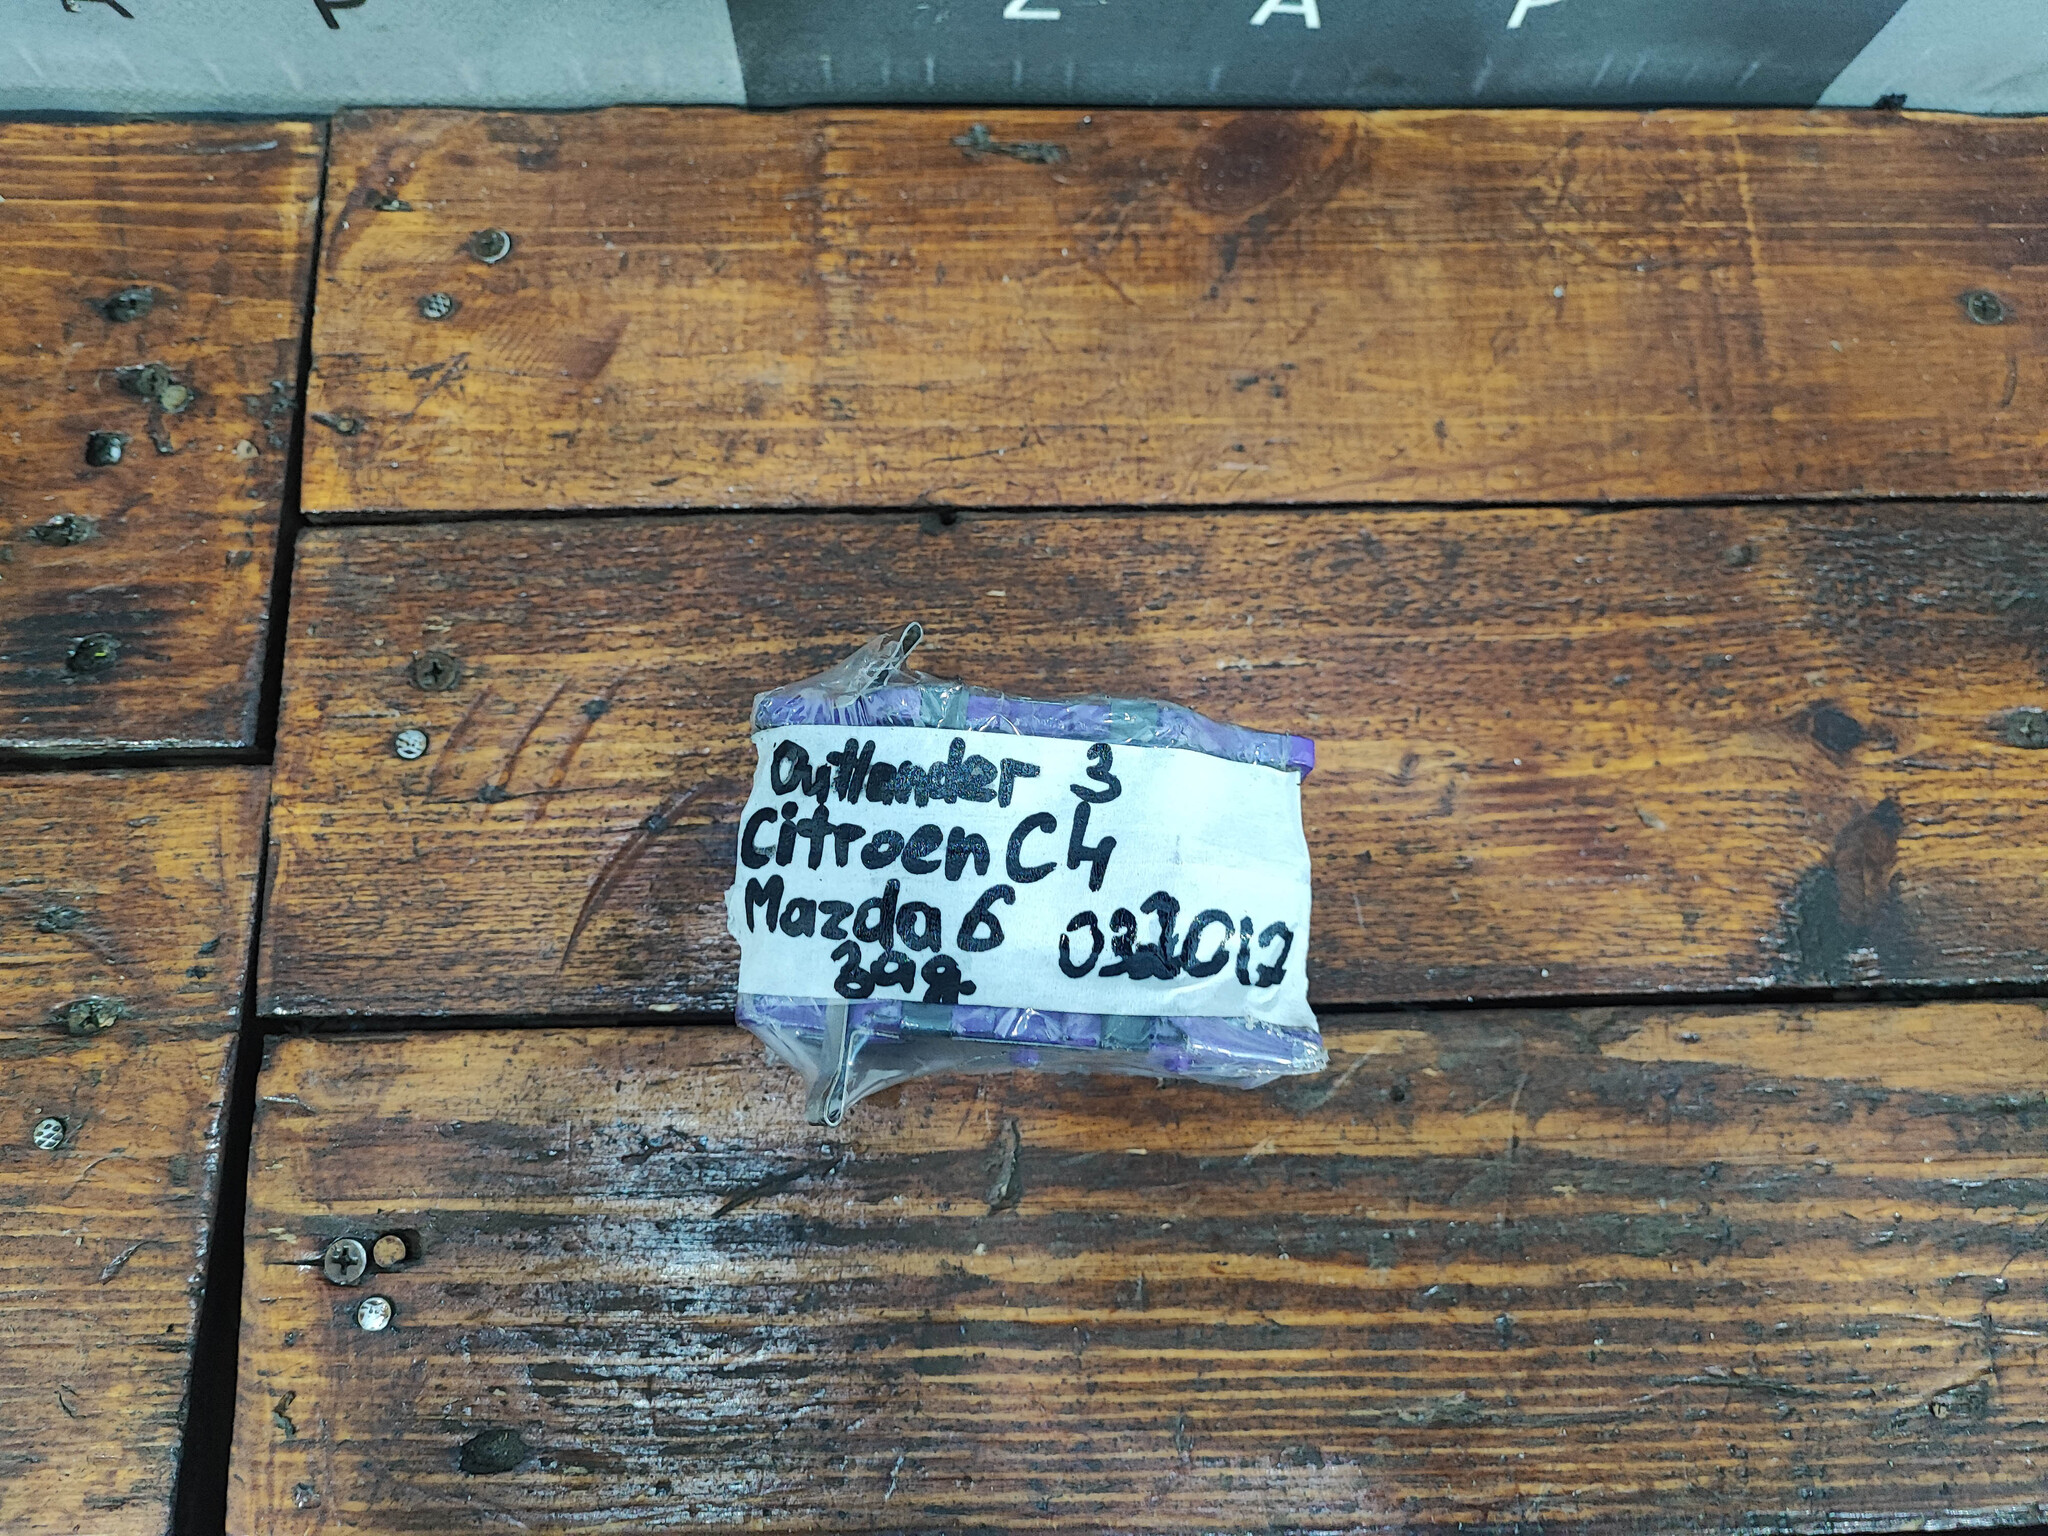 Z A P
Outlander 3
Citroen C4
Mazda 6
Зад